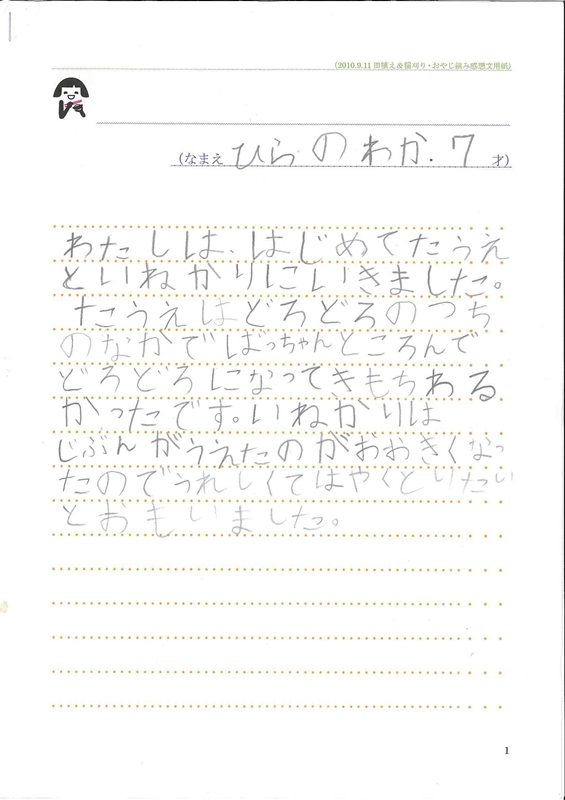 (2010.9.11 田植え＆稲刈り・おやじ組み感想文用紙)
(なまえ ひらの わか. 7 才)
わたしは、はじめてたうえ
といねかりにいきました。
たうえはどろどろのつち
のなかでばっちゃんところんで
どろどろになってきもちわる
かったです。いねかりは
じぶんがうえたのがおおきくなっ
たのでうれしくてはやくとりたい
とおもいました。
1